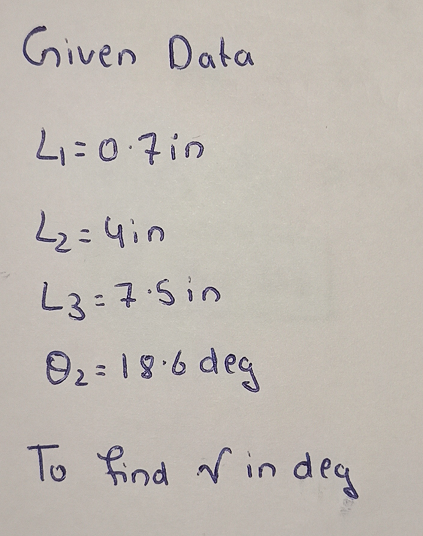 Given Data
L₁=0.7in
L₂=4in
L3=7.5in
θ₂=18.6 deg
To find √ in deg